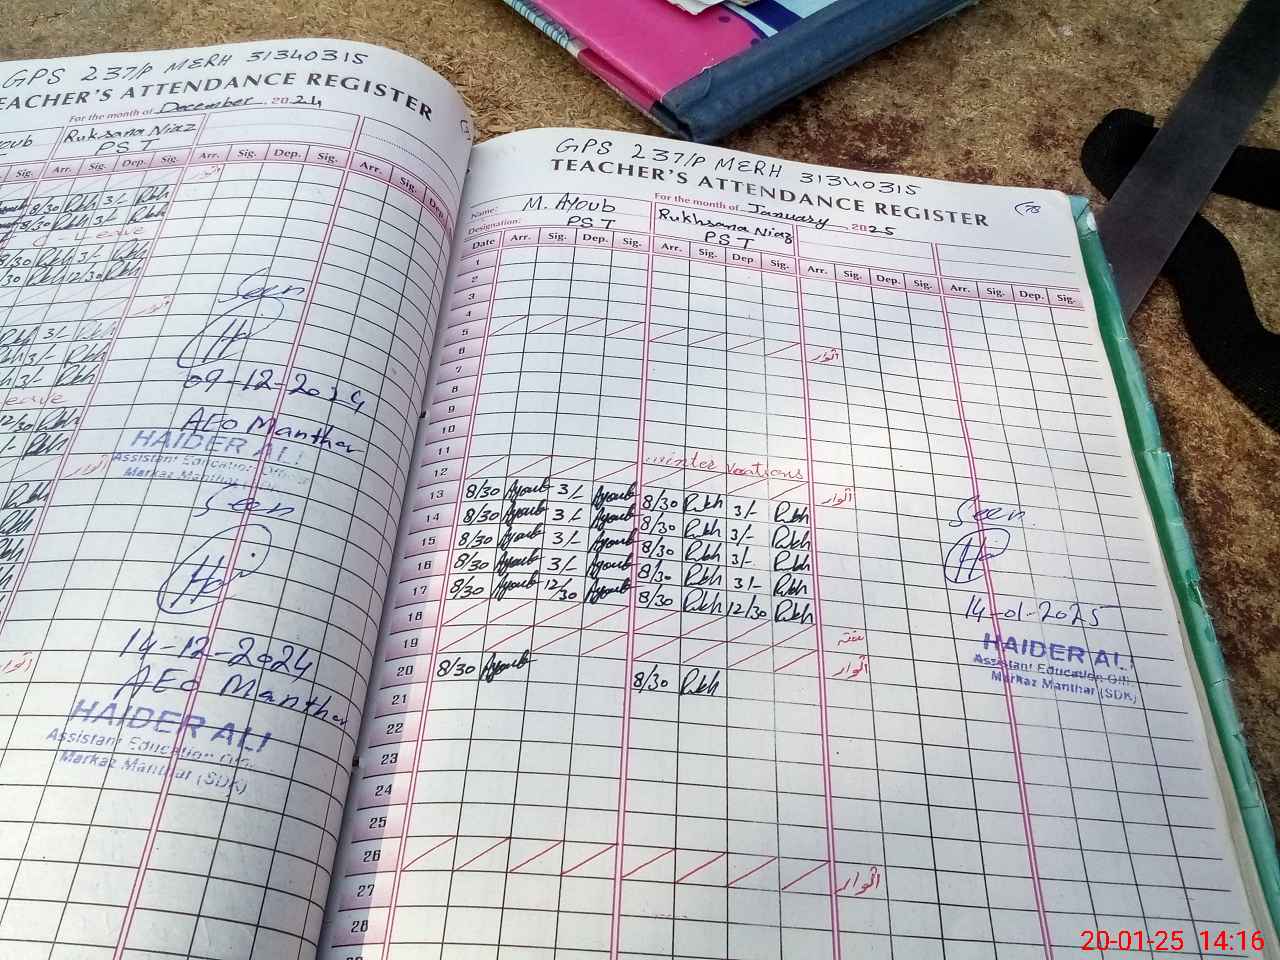 GPS 237/P MERH 31340315
TEACHER'S ATTENDANCE REGISTER
For the month of December 2024
Ruksana Niaz
PST
Sig. Arr. Sig. Dep. Sig. Arr. Sig. Dep. Sig. Arr. Sig. Dep.
8/30 Rkh 3/- Rkh
8/30 Rkh 3/- Rkh
8/30 Rkh 3/- Rkh
12/30 Rkh
اتوار
Seen
09-12-2024
AEO Manthar
HAIDER ALI
Assistant Education
Markaz Manthar
اتوار
Seen
14-12-2024
AEO Manthar
HAIDER ALI
Assistant Education
Markaz Manthar (SDK)
GPS 237/P MERH 31340315
TEACHER'S ATTENDANCE REGISTER
78
For the month of January 2025
Name: M. Ayoub Rukhsana Niaz
Designation: PST PST
Date Arr. Sig. Dep. Sig. Arr. Sig. Dep Sig. Arr. Sig. Dep. Sig. Arr. Sig. Dep. Sig.
1
2
3
4
5 اتوار
6
7
8
9
10
11 winter Vactions
12 اتوار
13 8/30 Ayoub 3/- Ayoub 8/30 Rukh 3/- Rukh
14 8/30 Ayoub 3/- Ayoub 8/30 Rukh 3/- Rukh
15 8/30 Ayoub 3/- Ayoub 8/30 Rukh 3/- Rukh
16 8/30 Ayoub 3/- Ayoub 8/30 Rukh 3/- Rukh
17 8/30 Ayoub 12/30 Ayoub 8/30 Rukh 12/30 Rukh
18 ہفتہ
19 اتوار
20 8/30 Ayoub 8/30 Rukh
21
22
23
24
25
26 اتوار
27
28
Seen
14-01-2025
HAIDER ALI
Assistant Education Offi
Markaz Manthar (SDK)
20-01-25 14:16